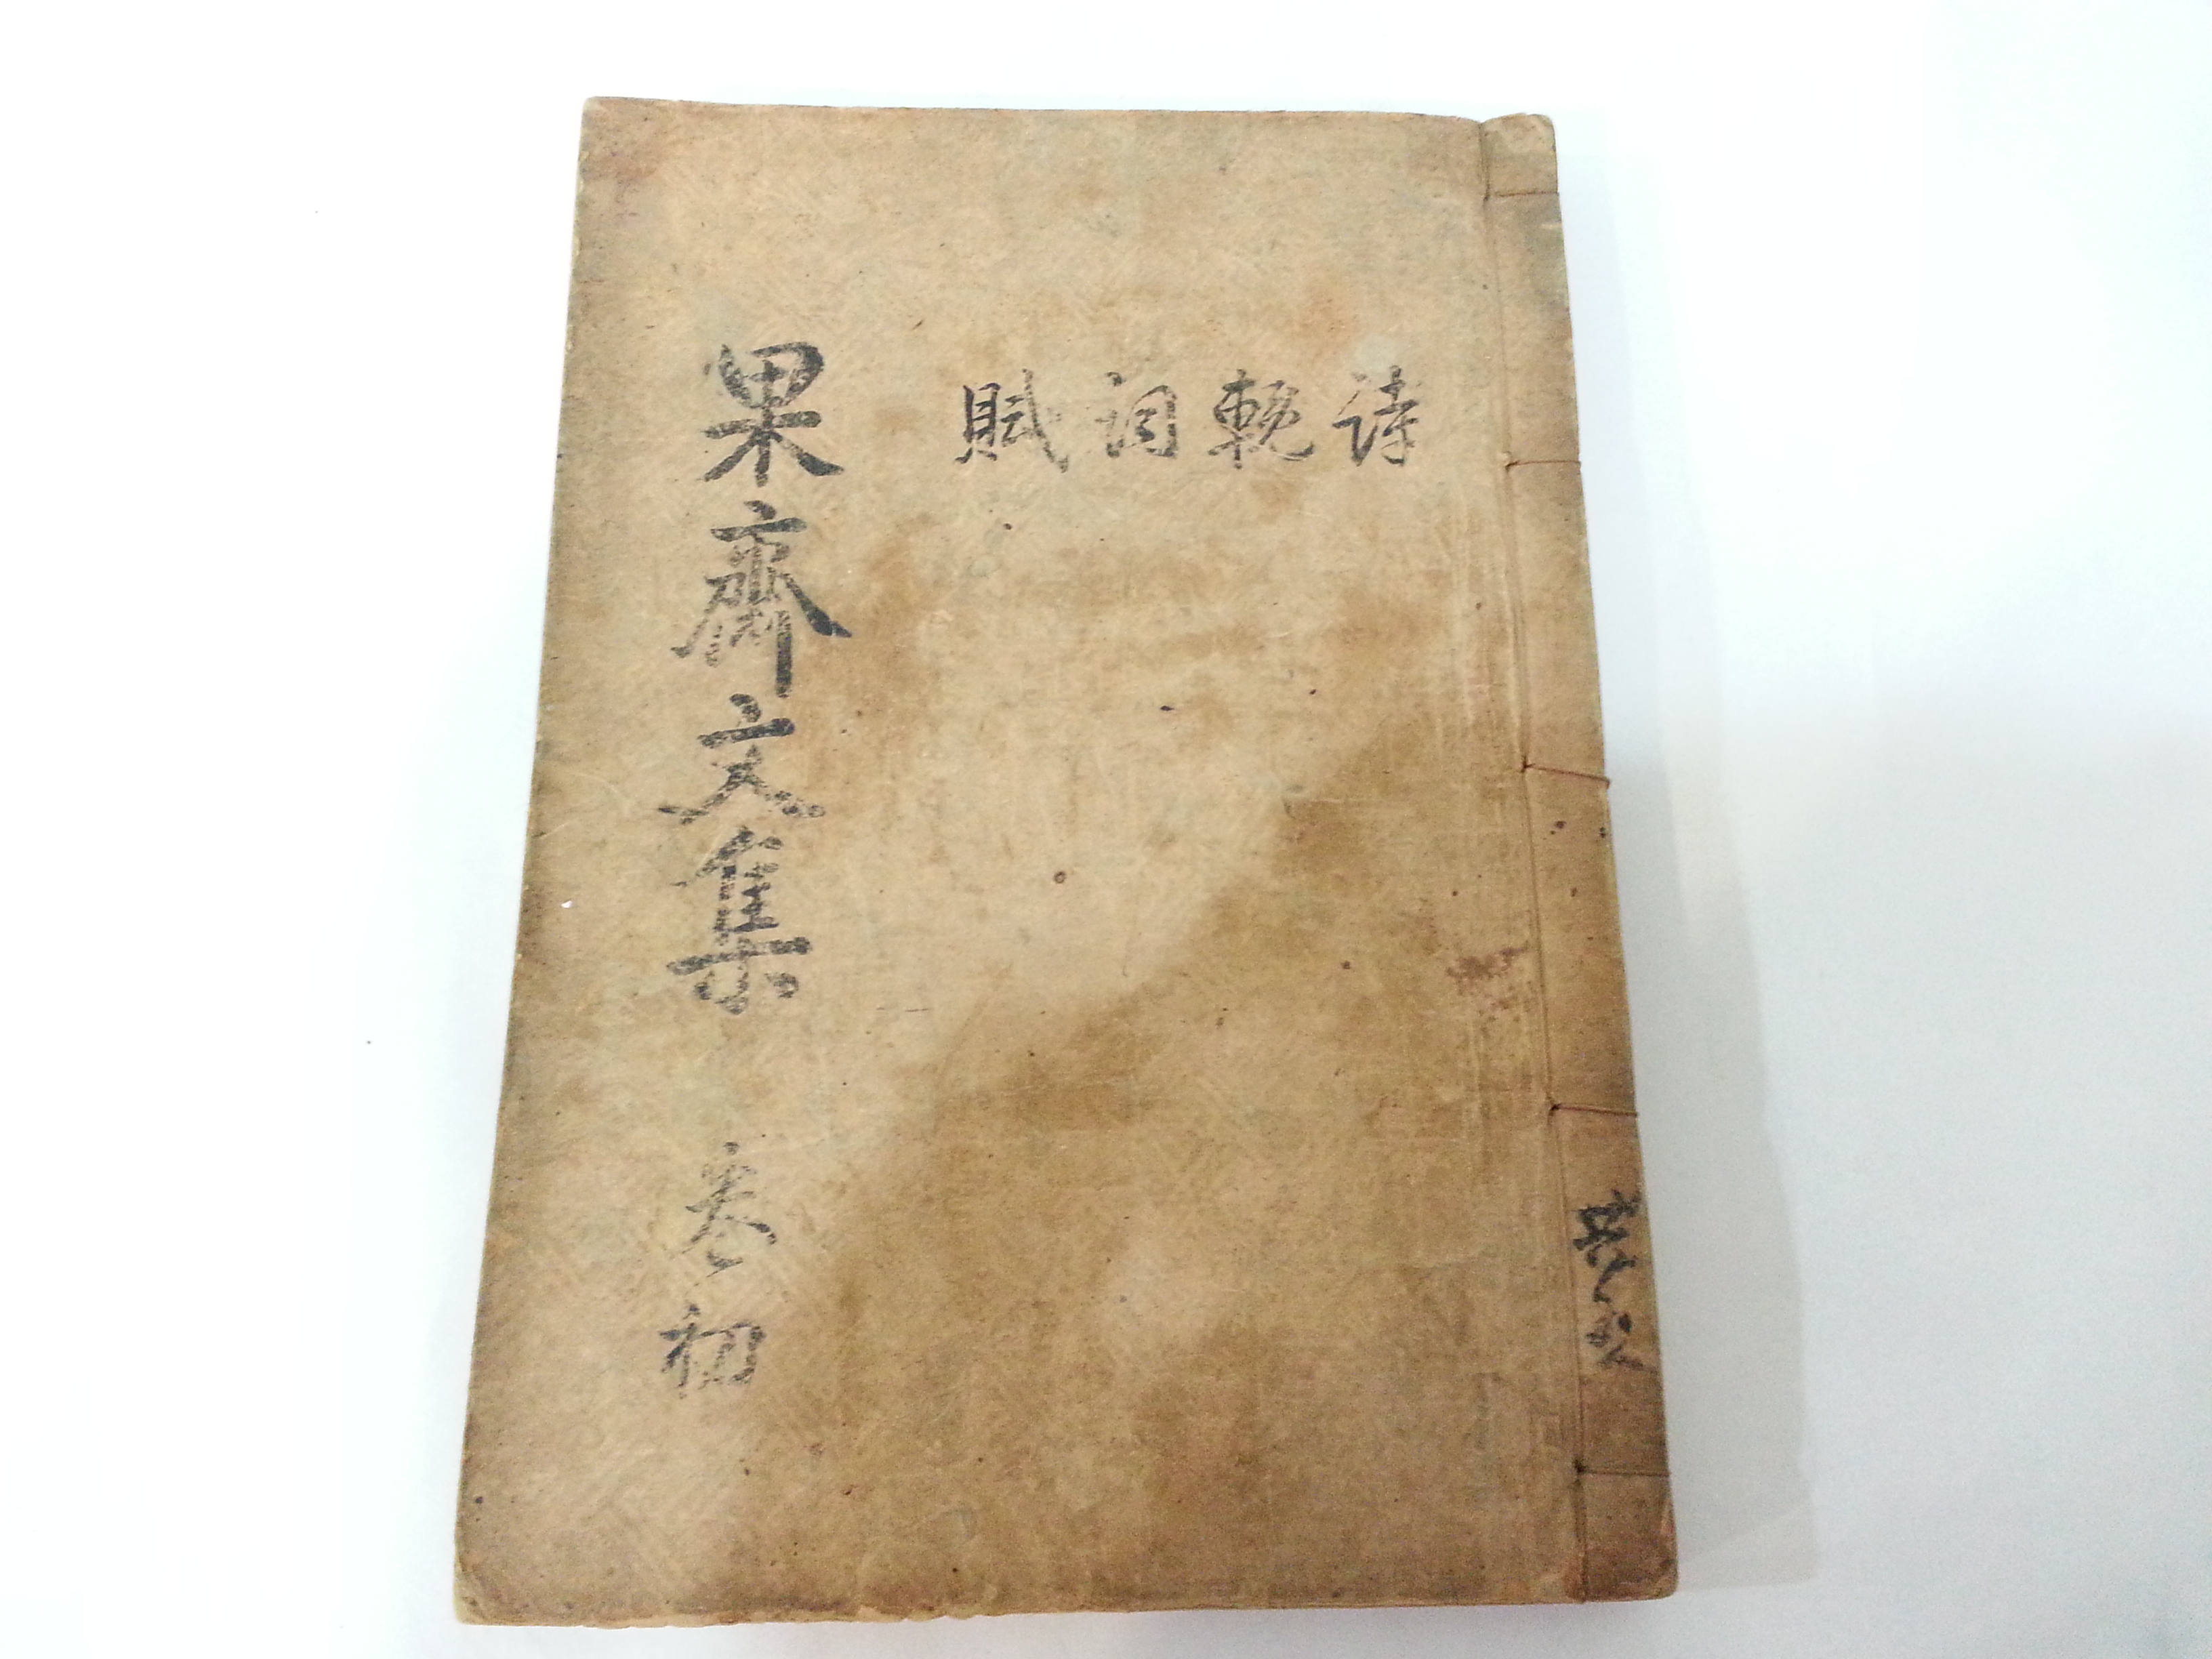 詩輓詞賦
果齋文集 卷初